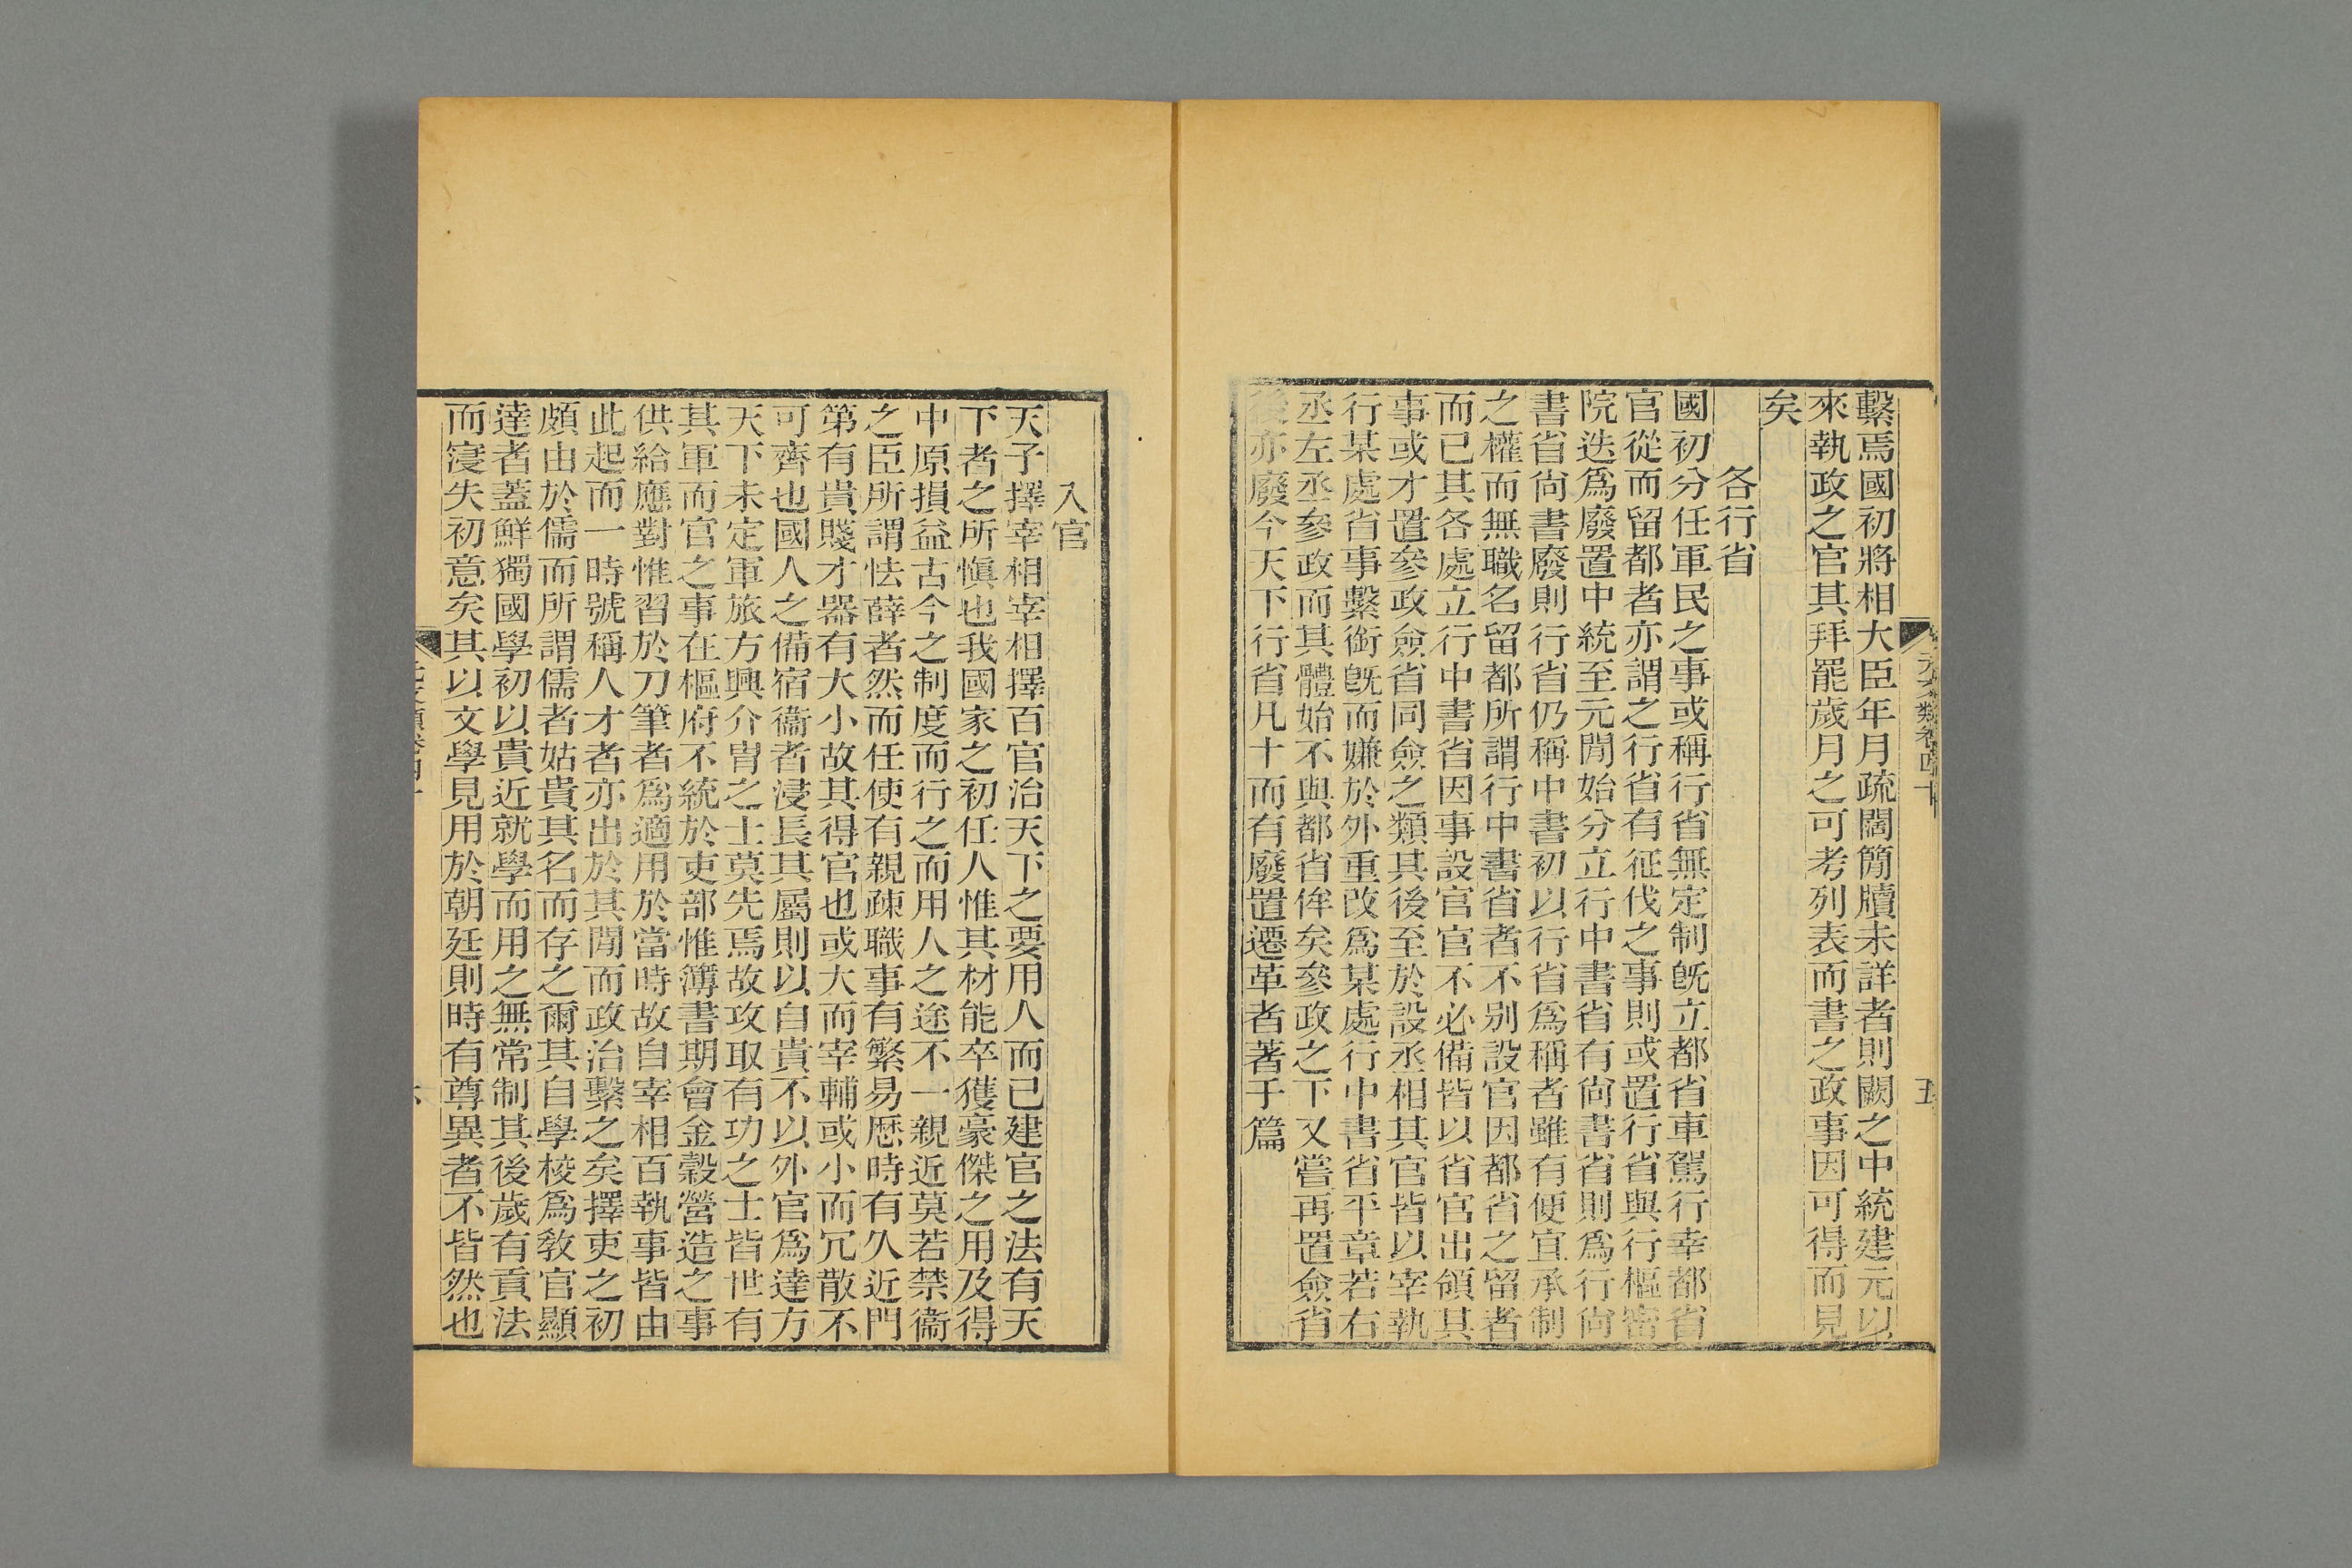 繫焉國初將相大臣年月疏闊簡牘未詳者則闕之中統建元以
來執政之官其拜罷歲月之可考列表而書之政事因可得而見
矣
各行省
國初分任軍民之事或稱行省無定制旣立都省車駕行幸都省
官從而留都者亦謂之行省有征伐之事則或置行省與行樞密
院迭爲廢置中統至元閒始分立行中書省有尙書省則爲行尙
書省尙書廢則行省仍稱中書初以行省爲稱者雖有便宜承制
之權而無職名留都所謂行中書省者不别設官因都省之留者
而已其各處立行中書省因事設官官不必備皆以省官出領其
事或才置參政僉省同僉之類其後至於設丞相其官皆以宰執
行某處省事繫銜旣而嫌於外重改爲某處行中書省平章若右
丞左丞參政而其體始不與都省侔矣參政之下又嘗再置僉省
後亦廢今天下行省凡十而有廢置遷革者著于篇
元文類卷四十
五
入官
天子擇宰相宰相擇百官治天下之要用人而已建官之法有天
下者之所愼也我國家之初任人惟其材能卒獲豪傑之用及得
中原損益古今之制度而行之而用人之途不一親近莫若禁衞
之臣所謂怯薛者然而任使有親疎職事有繁易歷時有久近門
第有貴賤才器有大小故其得官也或大而宰輔或小而冗散不
可齊也國人之備宿衞者浸長其屬則以自貴不以外官爲達方
天下未定軍旅方興介冑之士莫先焉故攻取有功之士皆世有
其軍而官之事在樞府不統於吏部惟簿書期會金穀營造之事
供給應對惟習於刀筆者爲適用於當時故自宰相百執事皆由
此起而一時號稱人才者亦出於其閒而政治繫之矣擇吏之初
頗由於儒而所謂儒者姑貴其名而存之爾其自學校爲敎官顯
達者蓋鮮獨國學初以貴近就學而用之無常制其後歲有貢法
而寖失初意矣其以文學見用於朝廷則時有尊異者不皆然也